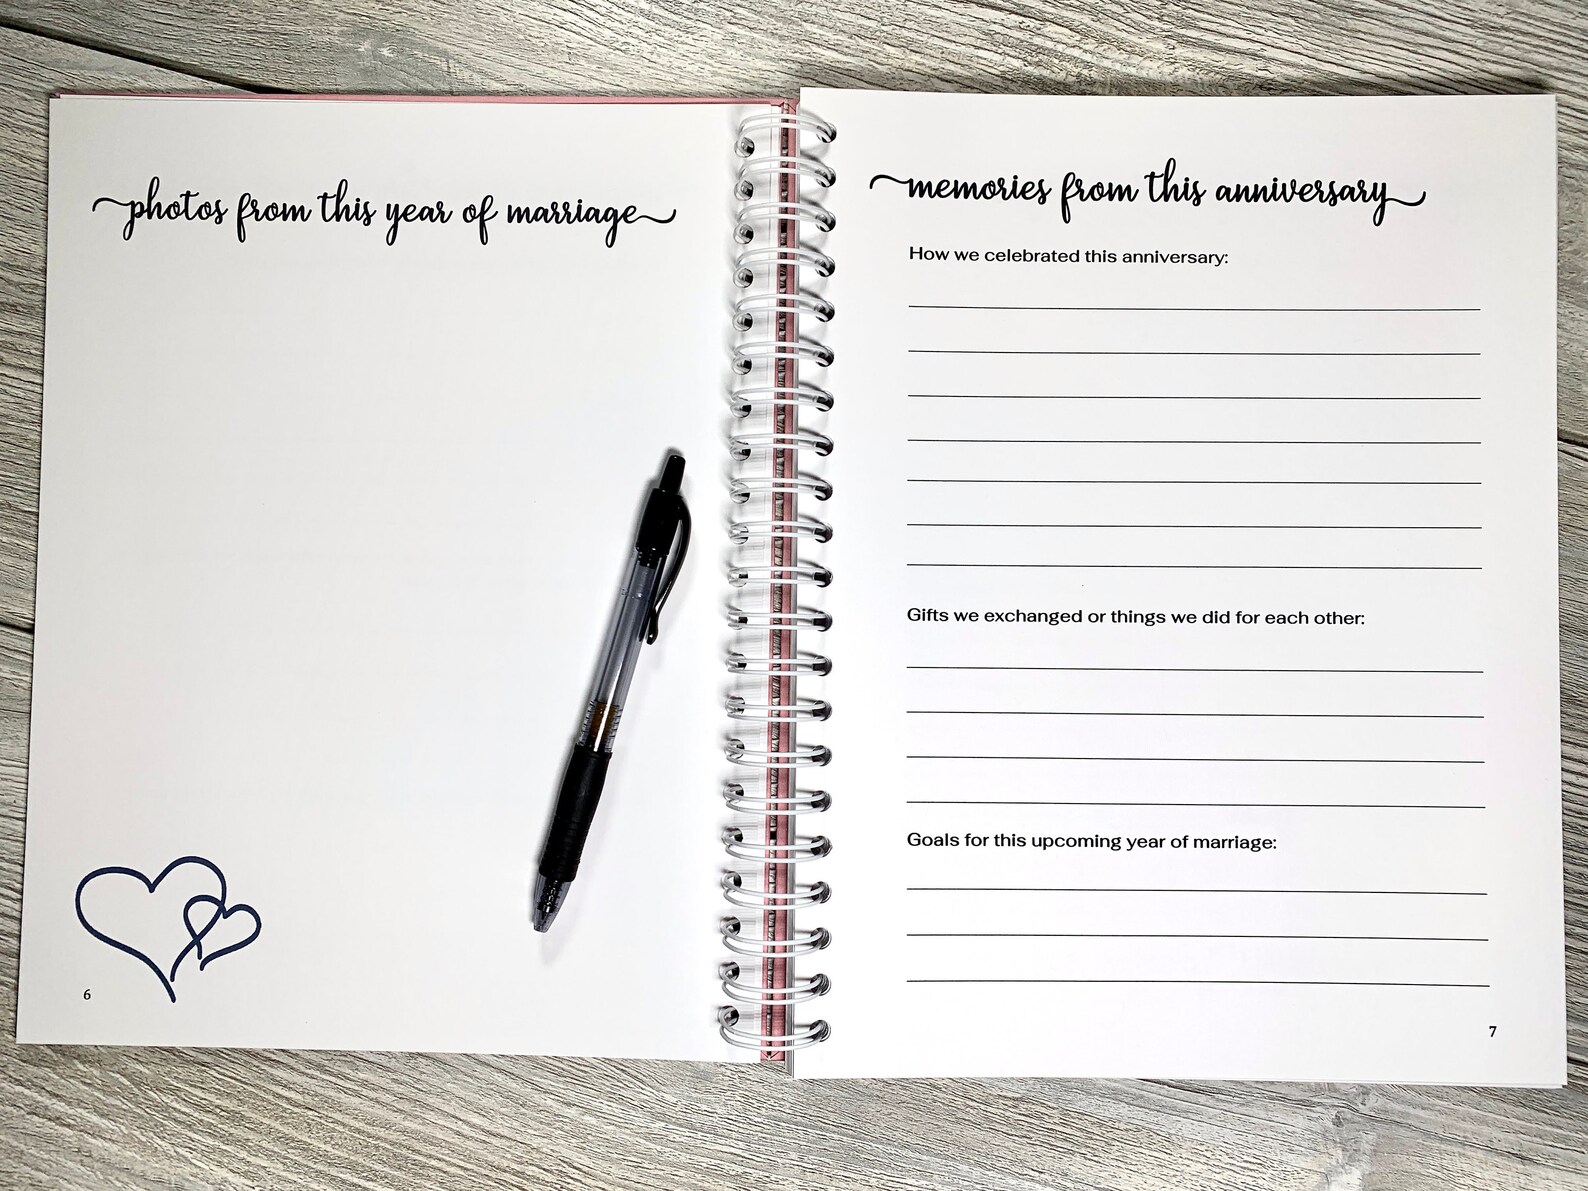 photos from this year of marriage
6
memories from this anniversary
How we celebrated this anniversary:
Gifts we exchanged or things we did for each other:
Goals for this upcoming year of marriage:
7